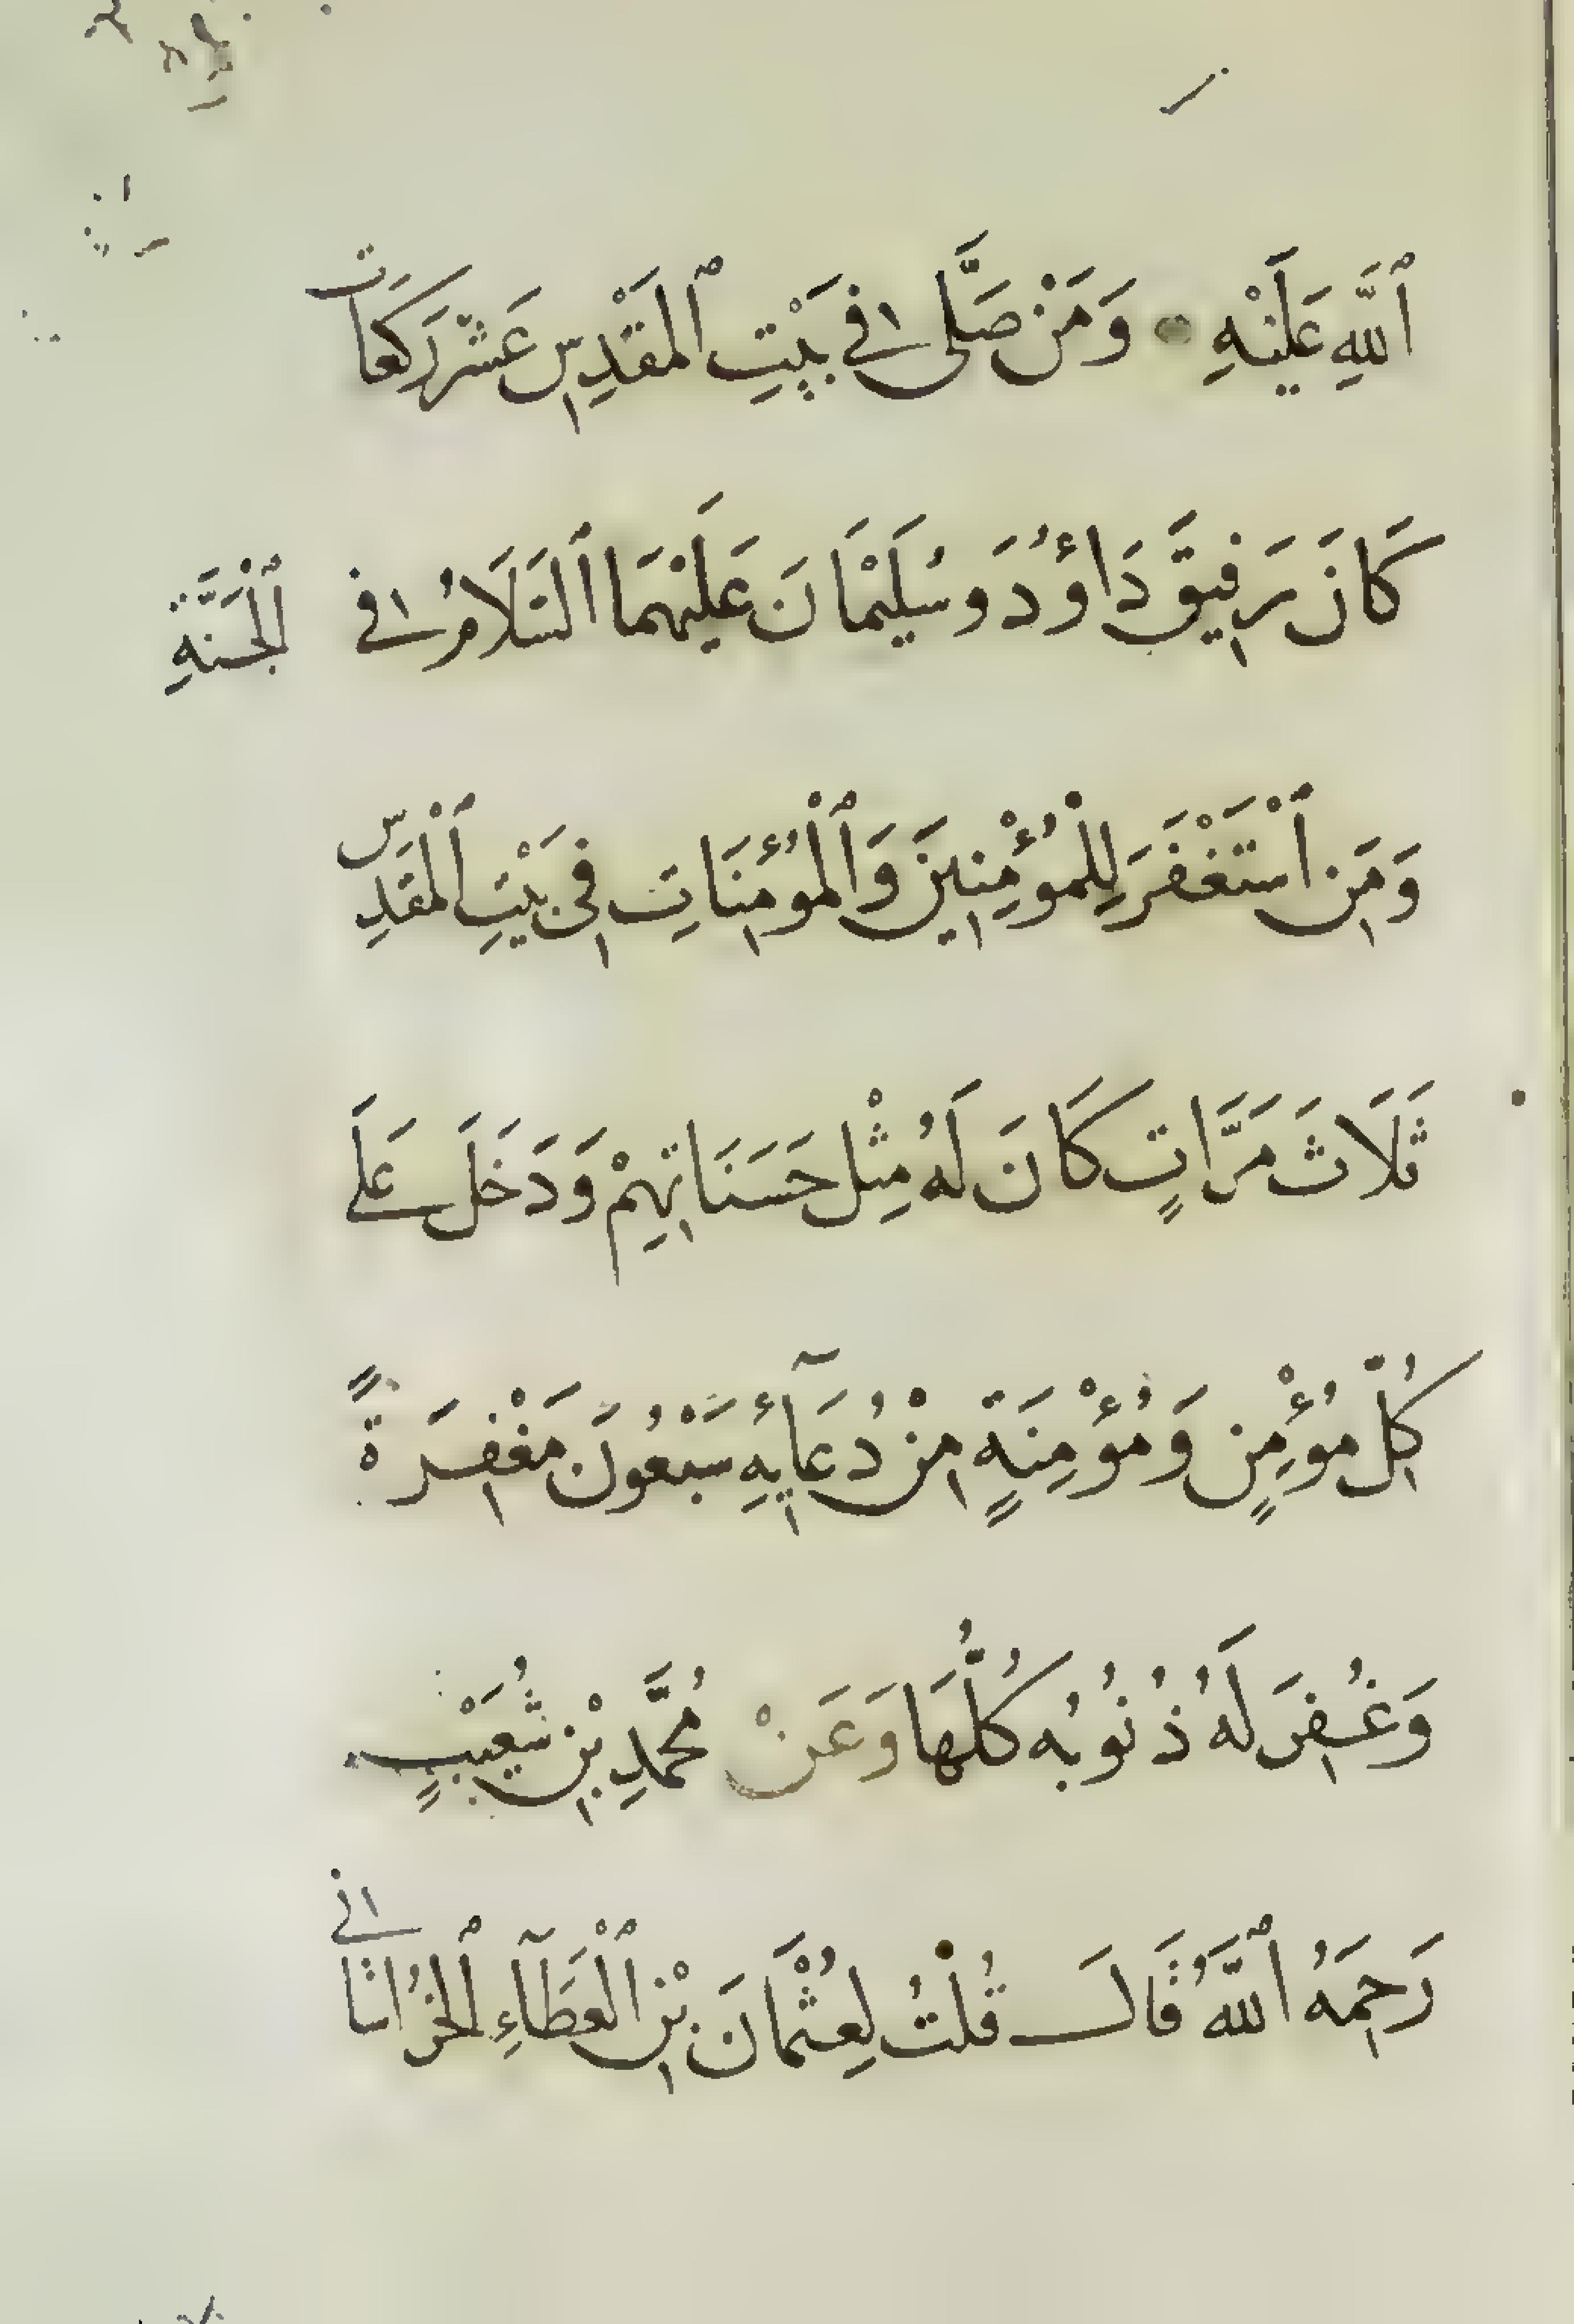 ٱللَّهِ عَلَيْهِ وَمَنْ صَلَّى فِي بَيْتِ ٱلْمَقْدِسِ عَشْرَ رَكَعَاتٍ
كَانَ رَفِيقَ دَاؤُدَ وسُلَيْمَانَ عَلَيْهِمَا ٱلسَّلَامُ فِي ٱلْجَنَّةِ
وَمَنِ ٱسْتَغْفَرَ لِلْمُؤْمِنِينَ وَٱلْمُؤْمِنَاتِ فِي بَيْتِ ٱلْمَقْدِسِ
ثَلَاثَ مَرَّاتٍ كَانَ لَهُ مِثْل حَسَنَاتِهِمْ وَدَخَلَ عَلَى
كُلِّ مُؤْمِنٍ وَمُؤْمِنَةٍ مِنْ دُعَآئِهِ سَبْعُونَ مَغْفِرَةً
وَغُفِرَ لَهُ ذُنُوبُه كُلُّهَا وَعَنْ مُحَمَّدِ بْنِ شُعَيْبٍ
رَحِمَهُ ٱللَّهُ قَالَ قُلْتُ لِعُثْمَانَ بْنِ ٱلْعَطَآءِ ٱلْخُرَاسَانِي